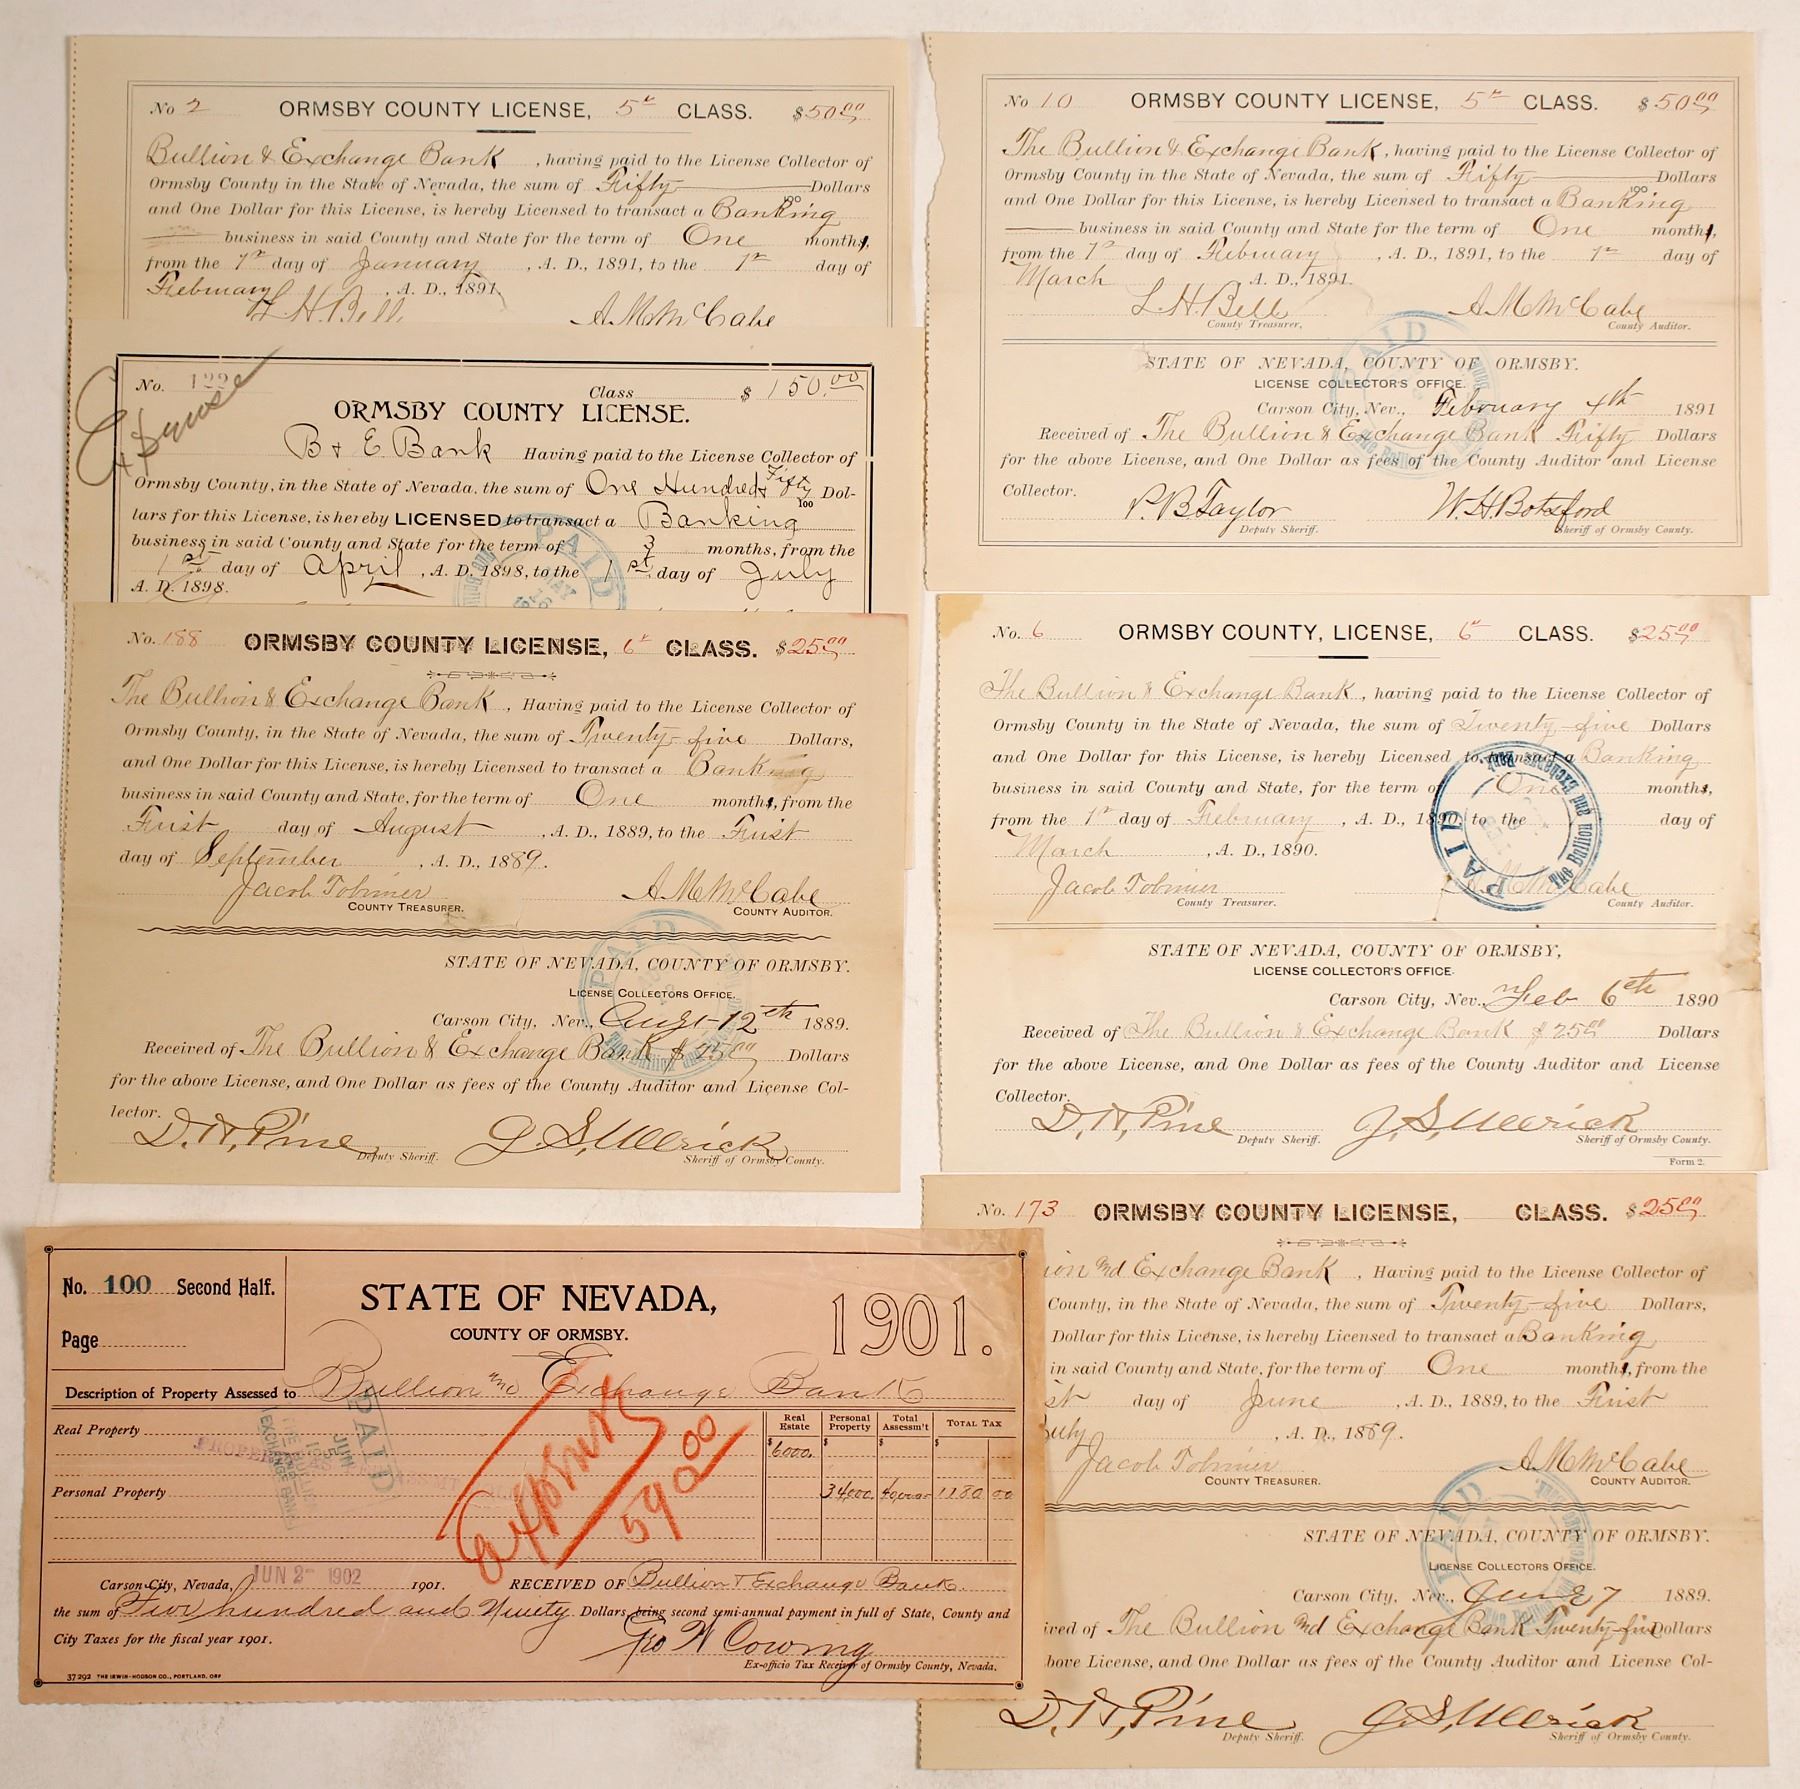 No 2 ORMSBY COUNTY LICENSE, 5th CLASS. $50.00
Bullion & Exchange Bank, having paid to the License Collector of
Ormsby County in the State of Nevada, the sum of Fifty Dollars
and One Dollar for this License, is hereby Licensed to transact a Banking
business in said County and State for the term of One month,
from the 1st day of January, A. D., 1891, to the 1st day of
February, A. D., 1891.
L. H. Bell A. M. McCabe
No. 122 Class $150.00
Expense
ORMSBY COUNTY LICENSE.
B & E Bank Having paid to the License Collector of
Ormsby County, in the State of Nevada, the sum of One Hundred & Fifty 100 Dol-
lars for this License, is hereby LICENSED to transact a Banking
business in said County and State for the term of 3 months, from the
1st day of April, A. D. 1898, to the 1st day of July
A. D. 1898.
PAID
No. 188 ORMSBY COUNTY LICENSE, 6th CLASS. $25.00
The Bullion & Exchange Bank, Having paid to the License Collector of
Ormsby County, in the State of Nevada, the sum of Twenty-five Dollars,
and One Dollar for this License, is hereby Licensed to transact a Banking
business in said County and State, for the term of One month, from the
First day of August, A. D., 1889, to the First
day of September, A. D., 1889.
Jacob Tobriner A. M. McCabe
COUNTY TREASURER. COUNTY AUDITOR.
PAID
STATE OF NEVADA, COUNTY OF ORMSBY.
LICENSE COLLECTORS OFFICE.
Carson City, Nev., Augt 12th 1889.
Received of The Bullion & Exchange Bank $25.00 Dollars
for the above License, and One Dollar as fees of the County Auditor and License Col-
lector.
D. H. Pine J. S. Ullrick
Deputy Sheriff. Sheriff of Ormsby County.
No. 100 Second Half.
Page
STATE OF NEVADA, 1901.
COUNTY OF ORMSBY.
Description of Property Assessed to Bullion and Exchange Bank
Real Property
Real Estate Personal Property Total Assessm't TOTAL TAX
$6000. $ $ $
Personal Property 34000. 40000 1180 00
Expense
590.00
PAID
JUN
THE BULLION AND
EXCHANGE BANK
Carson City, Nevada, JUN 2- 1902 1901. RECEIVED OF Bullion & Exchange Bank
the sum of Five hundred and Ninety Dollars, being second semi-annual payment in full of State, County and
City Taxes for the fiscal year 1901.
Geo W Cowing
Ex-officio Tax Receiver of Ormsby County, Nevada.
37292 THE IRWIN-HODSON CO., PORTLAND, ORE
No 10 ORMSBY COUNTY LICENSE, 5th CLASS. $50.00
The Bullion & Exchange Bank, having paid to the License Collector of
Ormsby County in the State of Nevada, the sum of Fifty Dollars
and One Dollar for this License, is hereby Licensed to transact a Banking
business in said County and State for the term of One month,
from the 1st day of February, A. D., 1891, to the 1st day of
March A. D., 1891.
L. H. Bell A. M. McCabe
County Treasurer, County Auditor.
PAID
STATE OF NEVADA, COUNTY OF ORMSBY.
LICENSE COLLECTOR'S OFFICE.
Carson City, Nev., February 4th 1891
Received of The Bullion & Exchange Bank Fifty Dollars
for the above License, and One Dollar as fees of the County Auditor and License
Collector.
P. B. Taylor W. H. Botsford
Deputy Sheriff. Sheriff of Ormsby County.
No. 6 ORMSBY COUNTY, LICENSE, 6th CLASS. $25.00
The Bullion & Exchange Bank, having paid to the License Collector of
Ormsby County in the State of Nevada, the sum of Twenty-five Dollars
and One Dollar for this License, is hereby Licensed to transact a Banking
business in said County and State, for the term of One month,
from the 1st day of February, A. D., 1890, to the day of
March, A. D., 1890.
PAID
The Bullion and Exchange Bank
Jacob Tobriner A. M. McCabe
County Treasurer. County Auditor.
STATE OF NEVADA, COUNTY OF ORMSBY,
LICENSE COLLECTOR'S OFFICE.
Carson City, Nev., Feb 6th 1890
Received of The Bullion & Exchange Bank $25.00 Dollars
for the above License, and One Dollar as fees of the County Auditor and License
Collector.
D. H. Pine J. S. Ullrick
Deputy Sheriff. Sheriff of Ormsby County.
Form 2.
No. 173 ORMSBY COUNTY LICENSE, CLASS. $25.00
ion and Exchange Bank, Having paid to the License Collector of
County, in the State of Nevada, the sum of Twenty-five Dollars,
Dollar for this License, is hereby Licensed to transact a Banking
in said County and State, for the term of One month, from the
st day of June, A. D., 1889, to the First
July, A. D., 1889.
Jacob Tobriner A. M. McCabe
COUNTY TREASURER. COUNTY AUDITOR.
PAID
STATE OF NEVADA, COUNTY OF ORMSBY.
LICENSE COLLECTORS OFFICE.
Carson City, Nev., June 7 1889.
ived of The Bullion and Exchange Bank Twenty-five Dollars
bove License, and One Dollar as fees of the County Auditor and License Col-
D. H. Pine J. S. Ullrick
Deputy Sheriff. Sheriff of Ormsby County.